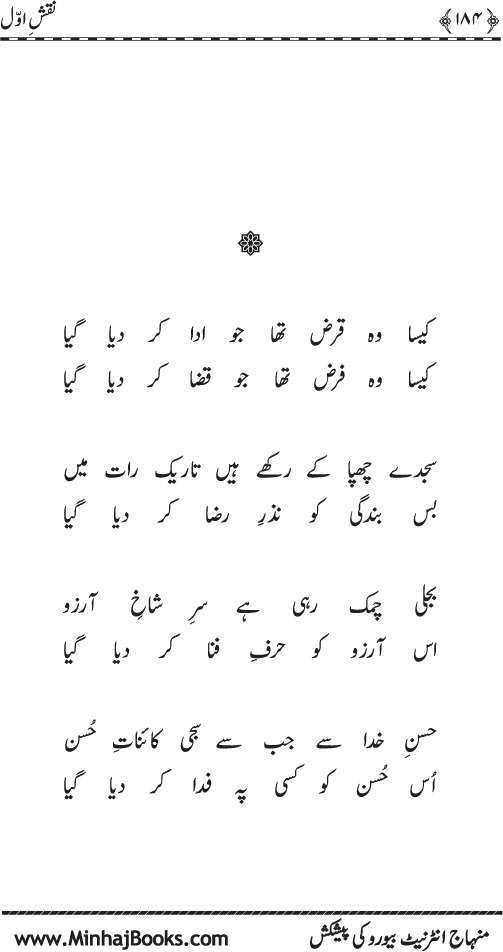 ﴿۱۸۴﴾ نقشِ اوّل
کیسا وہ قرض تھا جو ادا کر دیا گیا
کیسا وہ فرض تھا جو قضا کر دیا گیا
سجدے چھپا کے رکھے ہیں تاریک رات میں
بس بندگی کو نذرِ رضا کر دیا گیا
بجلی چمک رہی ہے سرِ شاخِ آرزو
اس آرزو کو حرفِ فنا کر دیا گیا
حسنِ خدا سے جب سے سجی کائناتِ حُسن
اُس حُسن کو کسی پہ فدا کر دیا گیا
منہاج انٹرنیٹ بیورو کی پیشکش www.MinhajBooks.com